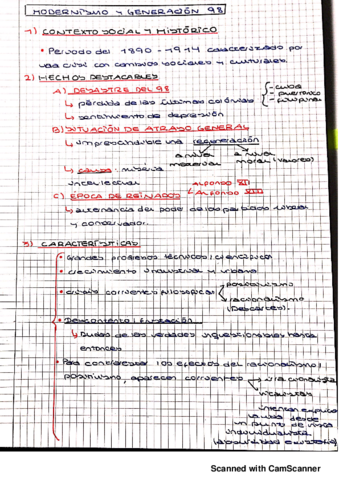 MODERNISMO Y GENERACIÓN 98
1) CONTEXTO SOCIAL Y HISTÓRICO
• Periodo del 1890 - 1914 caracterizado por
una crisi con cambios sociales y culturales.
2) HECHOS DESTACABLES
A) DESASTRE DEL 98
- cuba
- puertorico
- filipinas
↳ pérdida de las últimas colónias
↳ sentimiento de depresión
B) SITUACIÓN DE ATRASO GENERAL
↳ imprescindible una regeneración
a nivel material
a nivel moral (valores)
↳ causa: miseria
intelectual
C) ÉPOCA DE REINADOS
ALFONSO XII
ALFONSO XIII
↳ alternancia del poder de los partidos liberal
y conservador.
3) CARACTERÍSTICAS
• Grandes progresos técnicos i científicos
• crecimiento industrial y urbano
• crisis corrientes filosóficas
positivismo
racionalismo
(Descartes).
• Descontento i irritación
↳ Dudas de las verdades inquestionables hasta
entonces
• Para contrarestar los efectos del racionalismo i
positivismo, aparecen corrientes
irracionalista
vitalistas
intentan explicar
desde
un punto de vista
individualista